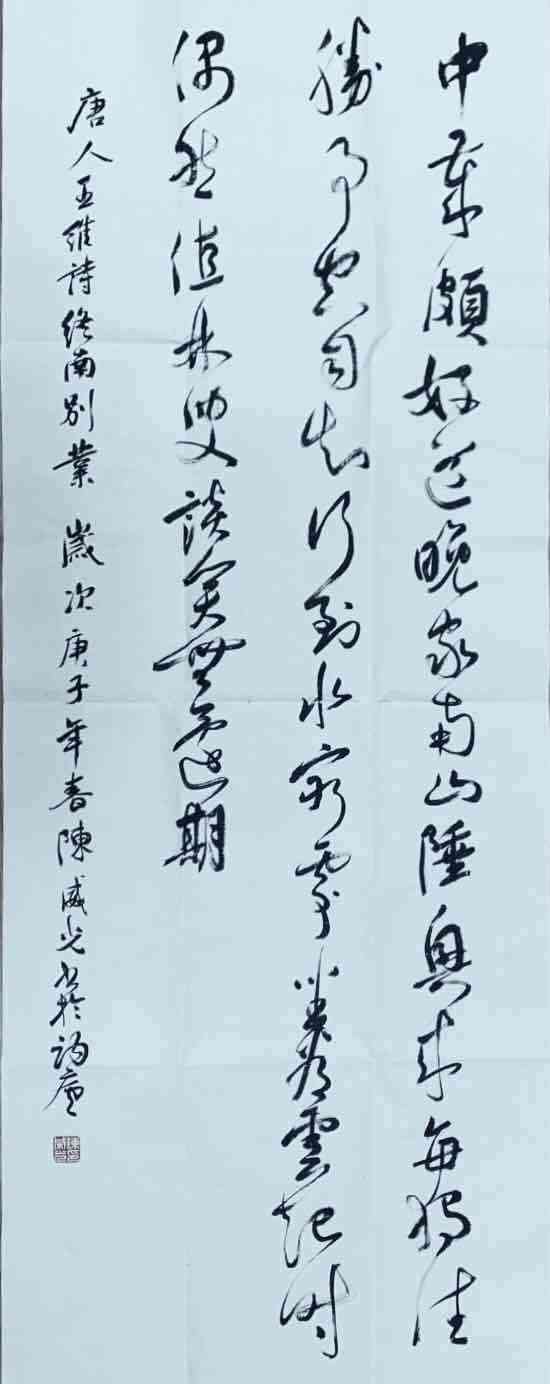 中歲頗好道晚家南山陲興來每獨往
勝事空自知行到水窮處坐看雲起時
偶然值林叟談笑無還期
唐人王維詩終南別業 歲次庚子年春陳威光書於